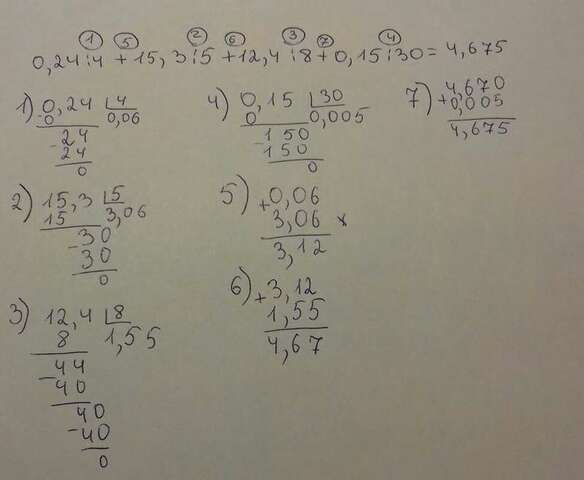 ① ⑤ ② ⑥ ③ ⑦ ④
0,24:4 + 15,3:5 + 12,4:8 + 0,15:30 = 4,675
1) 0,24 4
-0 0,06
-24
24
0
2) 15,3 5
15 3,06
-30
30
0
3) 12,4 8
8 1,55
-44
40
40
-40
0
4) 0,15 30
0 0,005
-150
150
0
5) +0,06
3,06 ×
3,12
6) +3,12
1,55
4,67
7) 4,670
+0,005
4,675